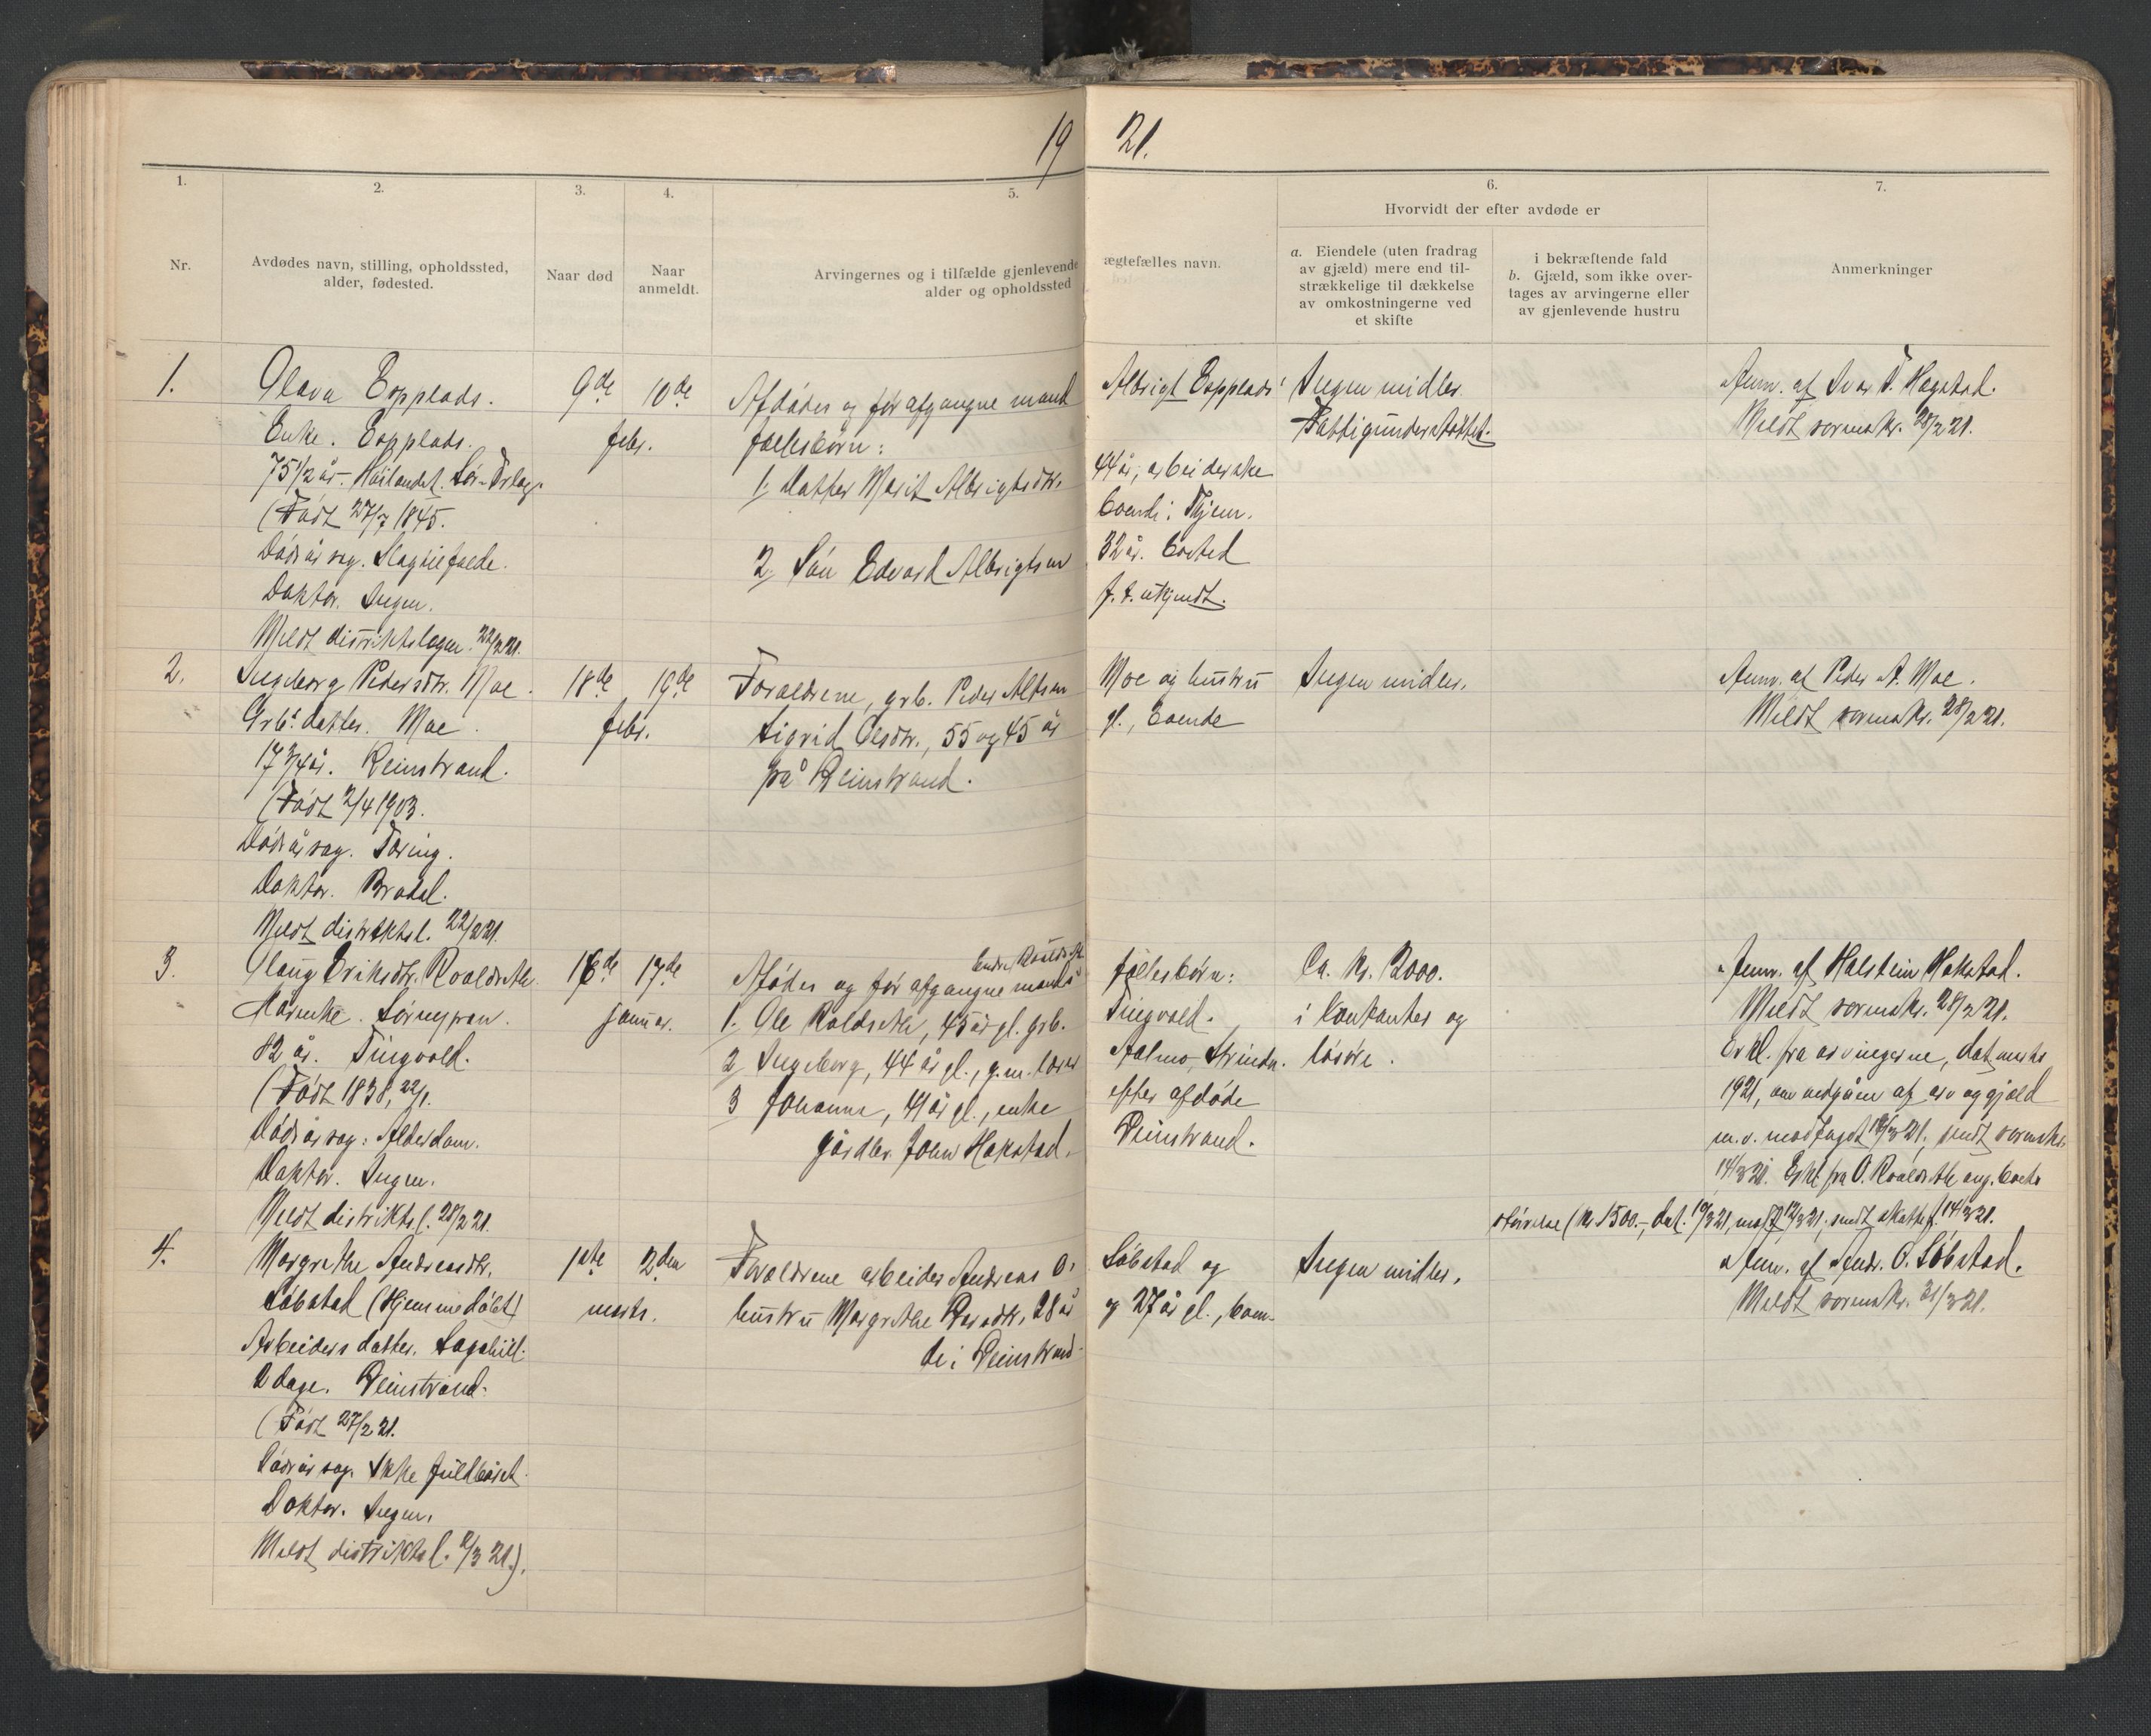 19 21.
1.
2.
3.
4.
5.
6.
7.
Nr.
Avdødes navn, stilling, opholdssted,
alder, fødested.
Naar død
Naar
anmeldt.
Arvingernes og i tilfælde gjenlevende
alder og opholdssted
ægtefælles navn.
Hvorvidt der efter avdøde er
a. Eiendele (uten fradrag
av gjæld) mere end til-
strækkelige til dækkelse
av omkostningerne ved
et skifte
i bekræftende fald
b. Gjæld, som ikke over-
tages av arvingerne eller
av gjenlevende hustru
Anmerkninger
1.
Olava Eopplads.
Enke. Eopplads.
75 1/2 år. Høilandet.
(Født 27/7 1845.
Dødsårsag. Slagtilfælde.
Doktor. Ingen.
Meldt distriktslægen. 22/2 21.
9de
febr.
10de
Afdødes og før afgangne mand
fællesbørn:
1, Datter Marit Albrigtsdtr.
2, Søn Edvard Albrigtsen
Albrigt Eopplads'
44 år, arbeiderske
boende i Thjem.
32 år. bosted
f. t. ukjendt.
Ingen midler.
Fattigunderstøttet.
Anm. af Ivar T. Hagstad.
Meldt sorenskr. 28/2 21.
2.
Ingeborg Pedersdtr. Moe.
Grb. datter. Moe.
17 3/4 år. Reinstrand.
(Født 2/4 1903.
Dødsårsag. Tæring.
Doktor. Bradal.
Meldt distriktsl. 22/2 21.
18de
febr.
19de
Forældrene, grb. Peder Altsen
Sigrid Olsdtr., 55 og 45 år
på Reinstrand.
Moe og hustru
gl., boende
Ingen midler.
Anm. af Peder A. Moe.
Meldt sorenskr. 28/2 21.
3.
Olaug Eriksdtr. Roaldseth.
Kårenke.
82 år. Tingvold.
(Født 1838, 22/1.
Dødsårsag: Alderdom.
Doktor. Ingen.
Meldt distriktsl. 28/2 21.
16de
januar.
17de
Afdødes og før afgangne mands
1. Ole Roldseth, 45 år gl. grb.
2 Ingeborg, 44 år gl., g.m. lærer
3 Johanna, 41 år gl., enke
gårdbr. John Hakstad.
fællesbørn:
Tingvold.
Aalmo, Strinda.
efter afdøde
Reinstrand.
Ca. kr. 2000.
i kontanter og
løsøre.
Anm. af Halstein Hakstad.
Meldt sorenskr. 28/2 21.
Erkl. fra arvingerne, dat. marts
1921, om vedgåen af arv og gjæld
m. v. modtaget 12/3 21, sendt sorenskr.
14/3 21. Erkl. fra O. Roaldseth ang. boets
størrelse (kr. 1500.-, dat. 10/3 21, modt. 12/3 21, sendt skattef. 14/3 21.
4.
Margrethe Andreasdtr.
Løbstad (Hjemmedøbt)
Arbeiders datter.
2 dage. Reinstrand.
(Født 27/2 21.
Dødsårsag. Ikke fuldbåret.
Doktor. Ingen.
Meldt distriktsl. 2/3 21.).
1ste
marts.
2den
Forældrene arbeider Andreas O.
hustru Margrethe 28 år
de i Reinstrand.
Løbstad og
og 27 år gl., boen-
Ingen midler.
Anm. af Andr. O. Løbstad.
Meldt sorenskr. 31/3 21.